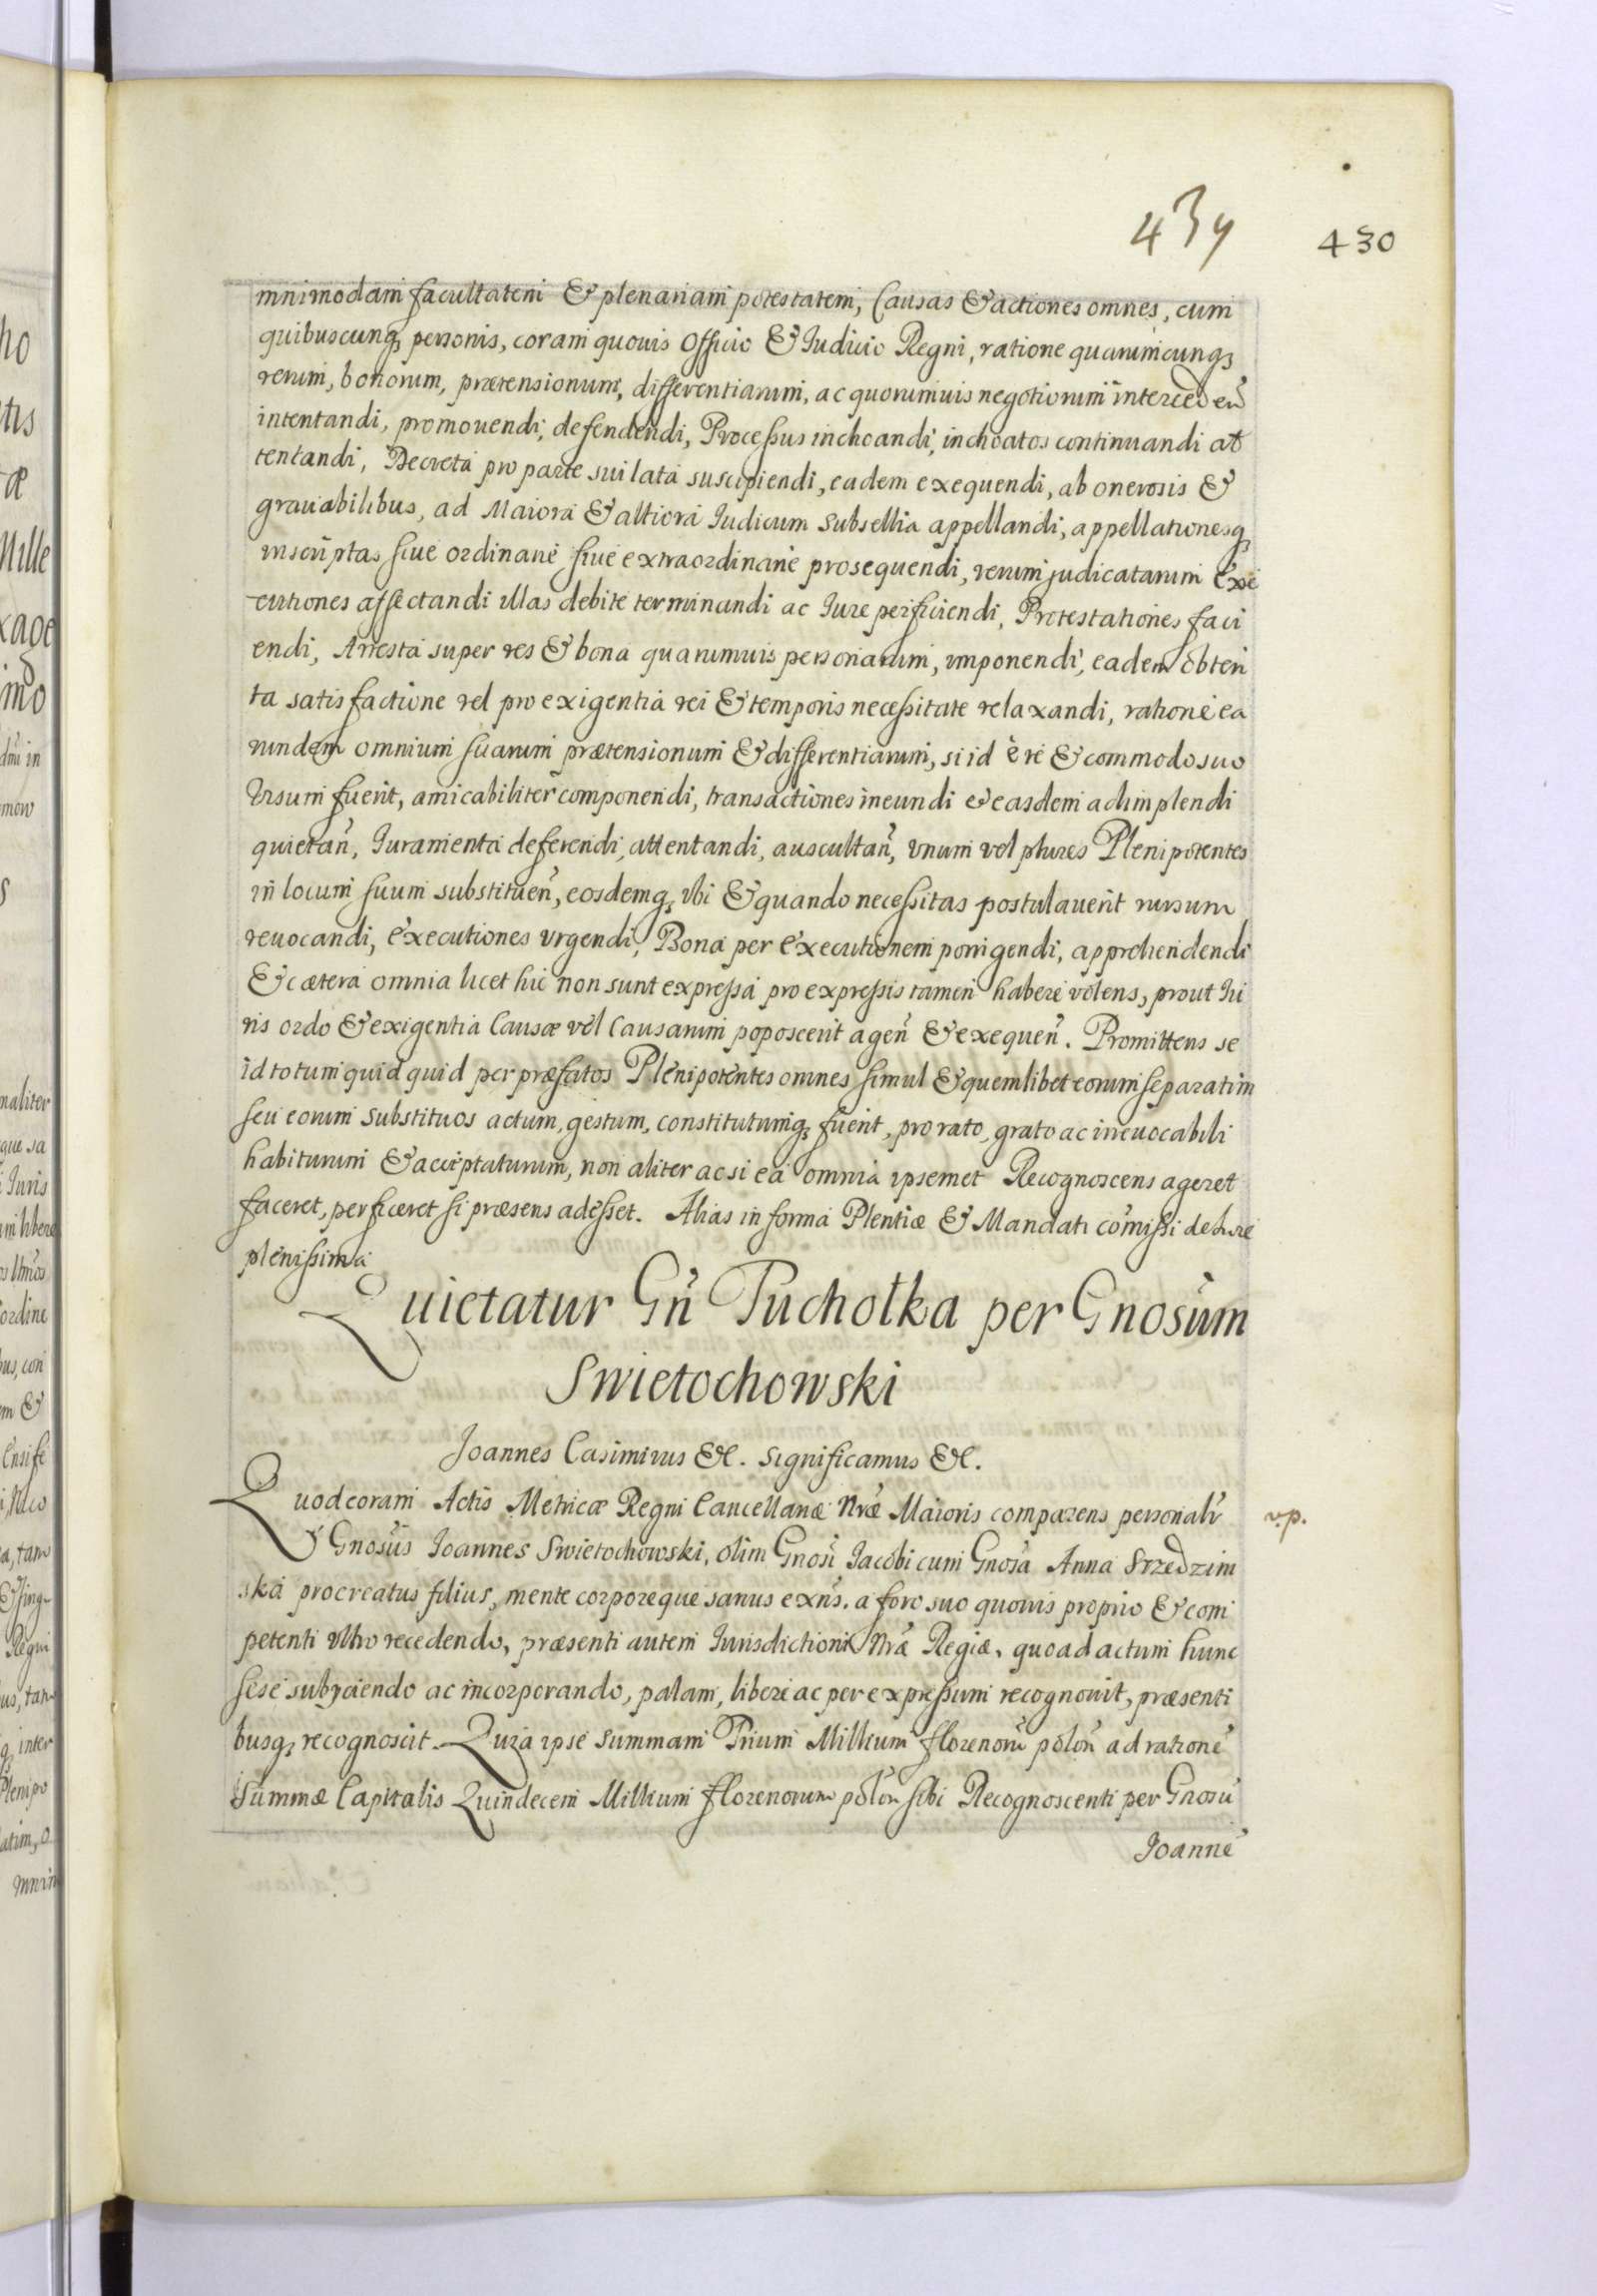 439
430
mnimodam facultatem & plenariam potestatem, Causas & actiones omnes, cum
quibuscunq, personis, coram quouis Officio & Iudicio Regni, ratione quarumcunq,
rerum, bonorum, prætensionum, differentiarum, ac quorumuis negotiorum interceden̄
intentandi, promouendi, defendendi, Processus inchoandi, inchoatos continuandi at
tentandi, Decreta pro parte sui lata suscipiendi, eadem exequendi, ab onerosis &
grauabilibus, ad Maiora & altiora Iudicum subsellia appellandi, appellationesq,
inscriptas siue ordinarie siue extraordinarie prosequendi, rerum judicatarum Exe
cutiones affectandi illas debite terminandi ac Iure perficiendi, Protestationes faci
endi, Arresta super res & bona quarumuis personarum, imponendi, eadem obten
ta satisfactione vel pro exigentia rei & temporis necessitate relaxandi, ratione ea
rundem omnium suarum prætensionum & differentiarum, si id è re & commodo suo
Visum fuerit, amicabiliter componendi, transactiones ineundi & easdem adimplendi
quietan̄, Iuramenta deferendi, attentandi, auscultan̄, vnum vel plures Plenipotentes
in locum suum substituen̄, eosdemq, vbi & quando necessitas postulauerit rursum
reuocandi, executiones vrgendi, Bona per executionem porrigendi, apprehendendi
& cætera omnia licet hic non sunt expressa pro expressis tamen habere volens, prout Iu
ris ordo & exigentia Causæ vel Causarum poposcerit agen̄ & exequen̄. Promittens se
id totum quidquid per præfatos Plenipotentes omnes simul & quemlibet eorum separatim
seu eorum substitutos actum, gestum, constitutumq, fuerit, pro rato, grato ac irreuocabili
habiturum & acceptaturum, non aliter ac si ea omnia ipsemet Recognoscens ageret
faceret, perficeret si præsens adesset. Alias in forma Plentiæ & Mandati com̄issi de Iure
plenissima
Quietatur Gn̄ Tucholka per Gnosum
Swietochowski
Joannes Casimirus &c. Significamus &c.
Quod coram Actis Metricæ Regni Cancellariæ Nrae Maioris comparens personalr
v.p.
Gnosus Joannes Swietochowski, olim Gnosi Jacobi cum Gnosa Anna Srzedzim
ska procreatus filius, mente corporeque sanus exn̄s. a foro suo quouis proprio & com
petenti vltro recedendo, præsenti autem Iurisdictioni Nrae Regiæ, quoad actum hunc
sese subijciendo ac incorporando, palam, libere ac per expressum recognouit, præsenti
busq, recognoscit. Quia ipse summam Trium Millium florenorū polon̄ ad rationē
summæ Capitalis Quindecem Millium florenorum polon̄ sibi Recognoscenti per Gnosū
Joannē